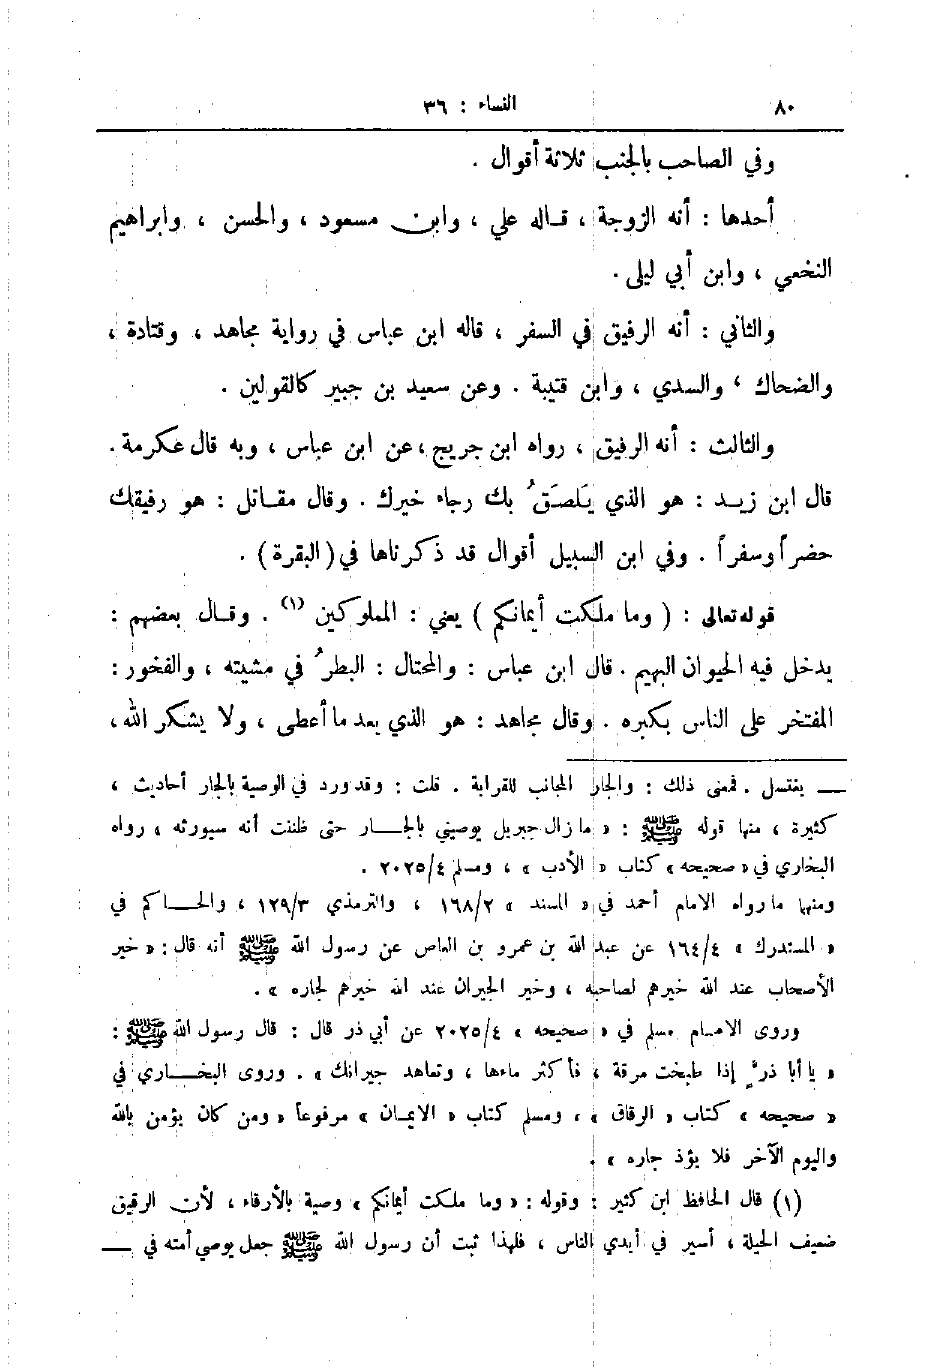 ٨٠ النساء : ٣٦
وفي الصاحب بالجنب ثلاثة أقوال .
أحدها : أنه الزوجة ، قـاله علي ، وابن مسعود ، والحسن ، وابراهيم
النخعي ، وابن أبي ليلى .
والثاني : أنه الرفيق في السفر ، قاله ابن عباس في رواية مجاهد ، وقتادة ،
والضحاك ، والسدي ، وابن قتيبة . وعن سعيد بن جبير كالقولين .
والثالث : أنه الرفيق ، رواه ابن جريج ، عن ابن عباس ، وبه قال عكرمة .
قال ابن زيـد : هو الذي يَلصَقُ بك رجاء خيرك . وقال مقـاتل : هو رفيقك
حضراً وسفراً . وفي ابن السبيل أقوال قد ذكرناها في ( البقرة ) .
قوله تعالى : ( وما ملكت أيمانكم ) يعني : المملوكين (١) . وقـال بعضهم :
يدخل فيه الحيوان البهيم . قال ابن عباس : والمختال : البطرُ في مشيته ، والفخور :
المفتخر على الناس بكبره . وقال مجاهد : هو الذي يعد ما أعطى ، ولا يشكر الله ،
ــ يغتسل . فمعنى ذلك : والجار المجانب للقرابة . قلت : وقد ورد في الوصية بالجار أحاديث ،
كثيرة ، منها قوله ﷺ : « ما زال جبريل يوصيني بالجـار حتى ظننت أنه سيورثه » رواه
البخاري في « صحيحه » كتاب « الأدب » ، ومسلم ٢٠٢٥/٤ .
ومنها ما رواه الامام أحمد في « المسند » ١٦٨/٢ ، والترمذي ١٢٩/٣ ، والحـاكم في
« المستدرك » ١٦٤/٤ عن عبد الله بن عمرو بن العاص عن رسول الله ﷺ أنه قال : « خير
الأصحاب عند الله خيرهم لصاحبه ، وخير الجيران عند الله خيرهم لجاره » .
وروى الامـام مسلم في « صحيحه » ٢٠٢٥/٤ عن أبي ذر قال : قال رسول الله ﷺ :
« يا أبا ذرٍّ إذا طبخت مرقة ، فأكثر ماءها ، وتعاهد جيرانك » . وروى البخـاري في
« صحيحه » كتاب « الرقاق » ، ومسلم كتاب « الايمان » مرفوعاً « ومن كان يؤمن بالله
واليوم الآخر فلا يؤذ جاره » .
(١) قال الحافظ ابن كثير : وقوله : « وما ملكت أيمانكم » وصية بالأرقاء ، لأن الرقيق
ضعيف الحيلة ، أسير في أيدي الناس ، فلهذا ثبت أن رسول الله ﷺ جعل يوصي أمته في ــ